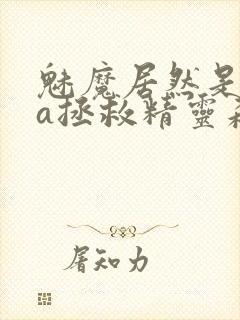 魅魔居然是
a拯救精靈
屠知力